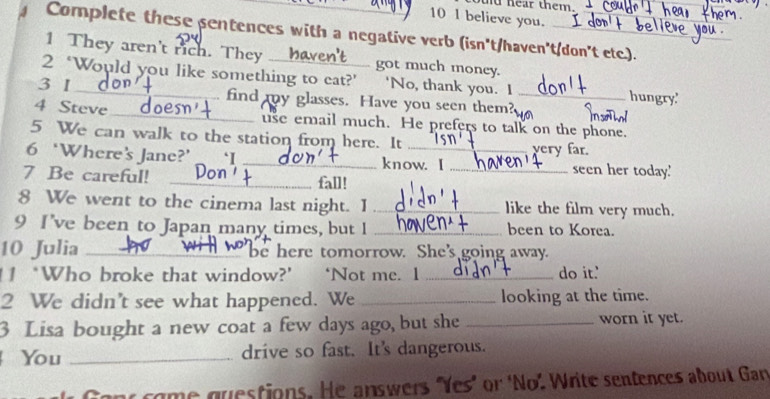 hear them. I couldn't hear them.
10 I believe you. I don't believe you.
Complete these sentences with a negative verb (isn't/haven't/don't etc.).
1 They aren't rich. They haven't got much money.
2 'Would you like something to eat?' 'No, thank you. I don't hungry.'
3 I don't find my glasses. Have you seen them?
4 Steve doesn't use email much. He prefers to talk on the phone.
5 We can walk to the station from here. It isn't very far.
6 'Where's Jane?' 'I don't know. I haven't seen her today.'
7 Be careful! Don't fall!
8 We went to the cinema last night. I didn't like the film very much.
9 I've been to Japan many times, but I haven't been to Korea.
10 Julia won't be here tomorrow. She's going away.
11 'Who broke that window?' 'Not me. I didn't do it.'
2 We didn't see what happened. We looking at the time.
3 Lisa bought a new coat a few days ago, but she worn it yet.
You drive so fast. It's dangerous.
some questions. He answers 'Yes' or 'No'. Write sentences about Gary